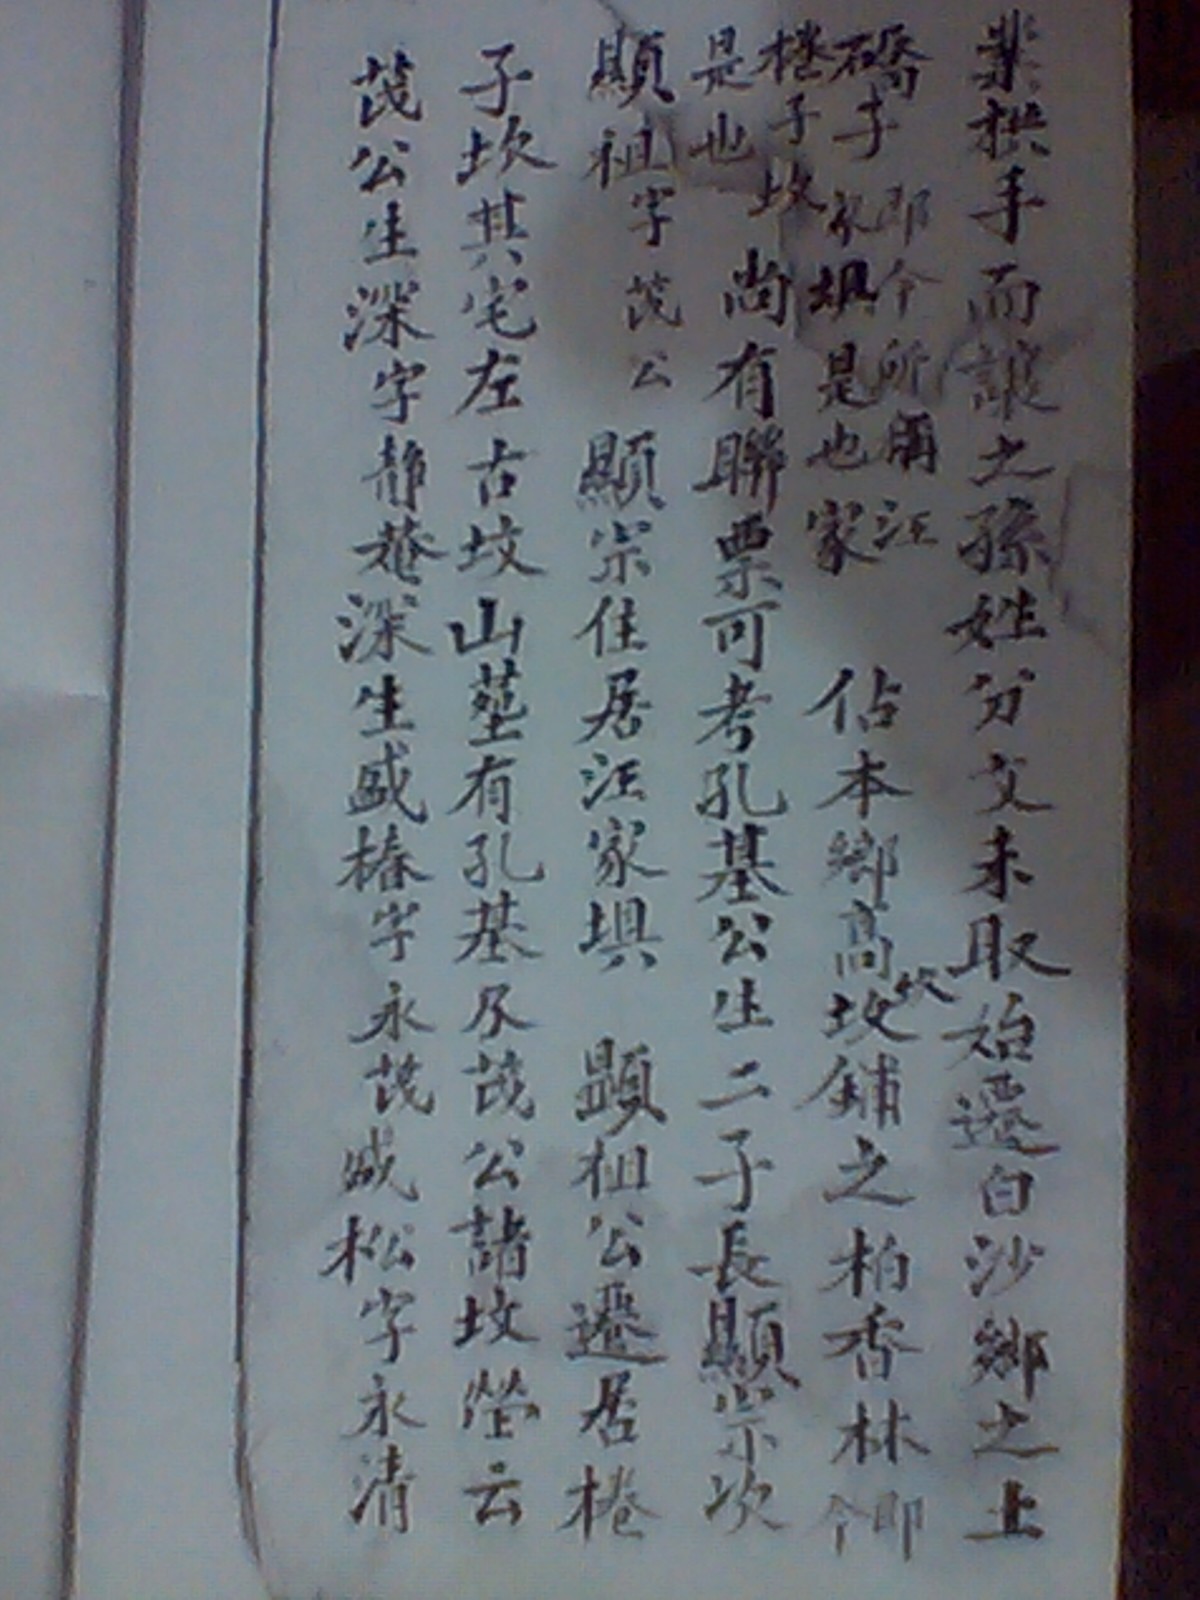 業拱手而讓之孫姓分文未取始遷白沙鄉之土
礄子即今所稱汪家垻是也家佔本鄉高坎坟鋪之柏香林即今
棬子坟是也尚有聯票可考孔基公生二子長顯宗次
顯祖字茂公顯宗住居汪家垻顯祖公遷居棬
子坎其宅左古坟山塋有孔基及茂公諸坟塋云
茂公生深字靜菴深生盛椿字永茂盛松字永清